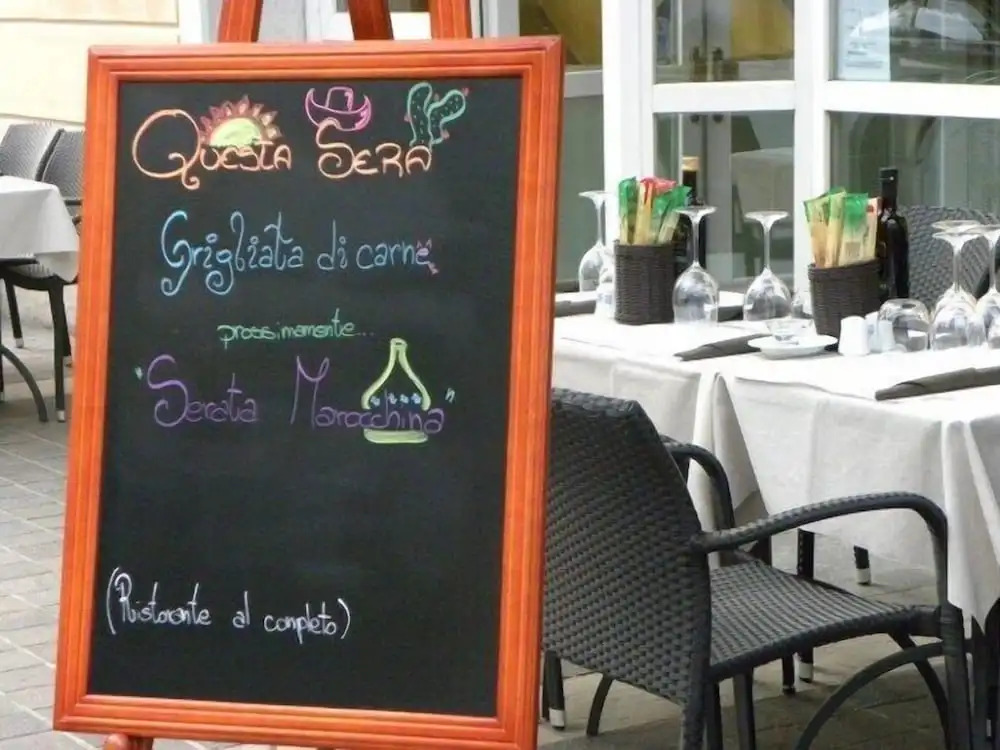 Questa Sera
Grigliata di carne
prossimamente...
"Serata Marocchina"
(Ristorante al completo)